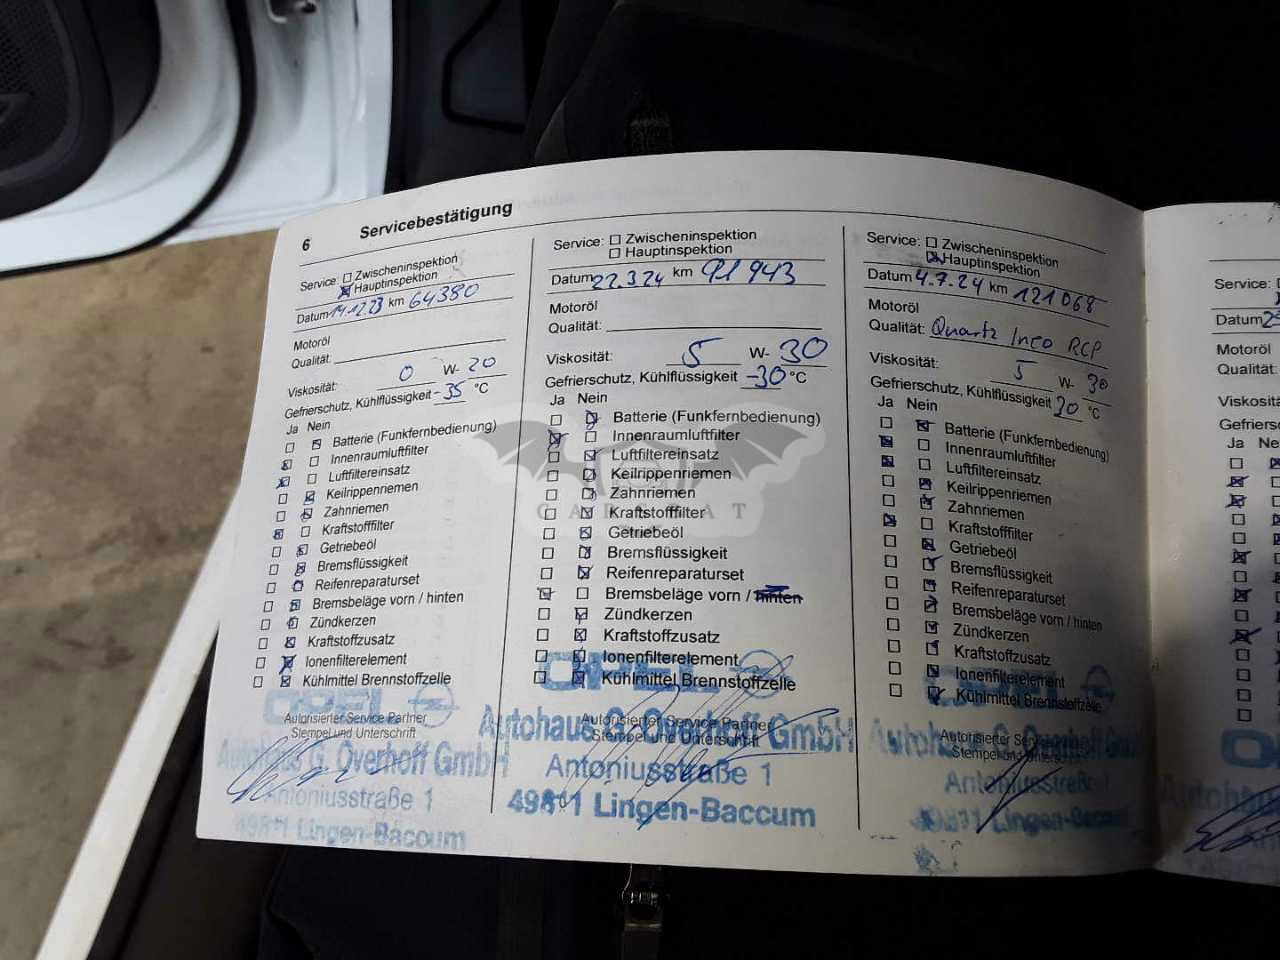 6 Servicebestätigung
Service: Zwischeninspektion
Hauptinspektion
Datum 14.12.23 km 64380
Motoröl
Qualität:
Viskosität: 0 W- 20
Gefrierschutz, Kühlflüssigkeit -35 °C
Ja Nein
Batterie (Funkfernbedienung)
Innenraumluftfilter
Luftfiltereinsatz
Keilrippenriemen
Zahnriemen
Kraftstofffilter
Getriebeöl
Bremsflüssigkeit
Reifenreparaturset
Bremsbeläge vorn / hinten
Zündkerzen
Kraftstoffzusatz
Ionenfilterelement
Kühlmittel Brennstoffzelle
OPEL
Autorisierter Service Partner
Stempel und Unterschrift
Autohaus G. Overhoff GmbH
Antoniusstraße 1
49811 Lingen-Baccum
Service: Zwischeninspektion
Hauptinspektion
Datum 22.3.24 km 91943
Motoröl
Qualität:
Viskosität: 5 W- 30
Gefrierschutz, Kühlflüssigkeit -30 °C
Ja Nein
Batterie (Funkfernbedienung)
Innenraumluftfilter
Luftfiltereinsatz
Keilrippenriemen
Zahnriemen
Kraftstofffilter
Getriebeöl
Bremsflüssigkeit
Reifenreparaturset
Bremsbeläge vorn / hinten
Zündkerzen
Kraftstoffzusatz
Ionenfilterelement
Kühlmittel Brennstoffzelle
OPEL
Autorisierter Service Partner
Stempel und Unterschrift
Autohaus G. Overhoff GmbH
Antoniusstraße 1
49811 Lingen-Baccum
Service: Zwischeninspektion
Hauptinspektion
Datum 4.7.24 km 121068
Motoröl
Qualität: Quartz Ineo RCP
Viskosität: 5 W- 30
Gefrierschutz, Kühlflüssigkeit 30 °C
Ja Nein
Batterie (Funkfernbedienung)
Innenraumluftfilter
Luftfiltereinsatz
Keilrippenriemen
Zahnriemen
Kraftstofffilter
Getriebeöl
Bremsflüssigkeit
Reifenreparaturset
Bremsbeläge vorn / hinten
Zündkerzen
Kraftstoffzusatz
Ionenfilterelement
Kühlmittel Brennstoffzelle
OPEL
Autorisierter Service
Stempel und Unterschrift
Autohaus G. Overhoff GmbH
Antoniusstraße
49811 Lingen-Baccum
Service:
Datum
Motoröl
Qualität:
Ja